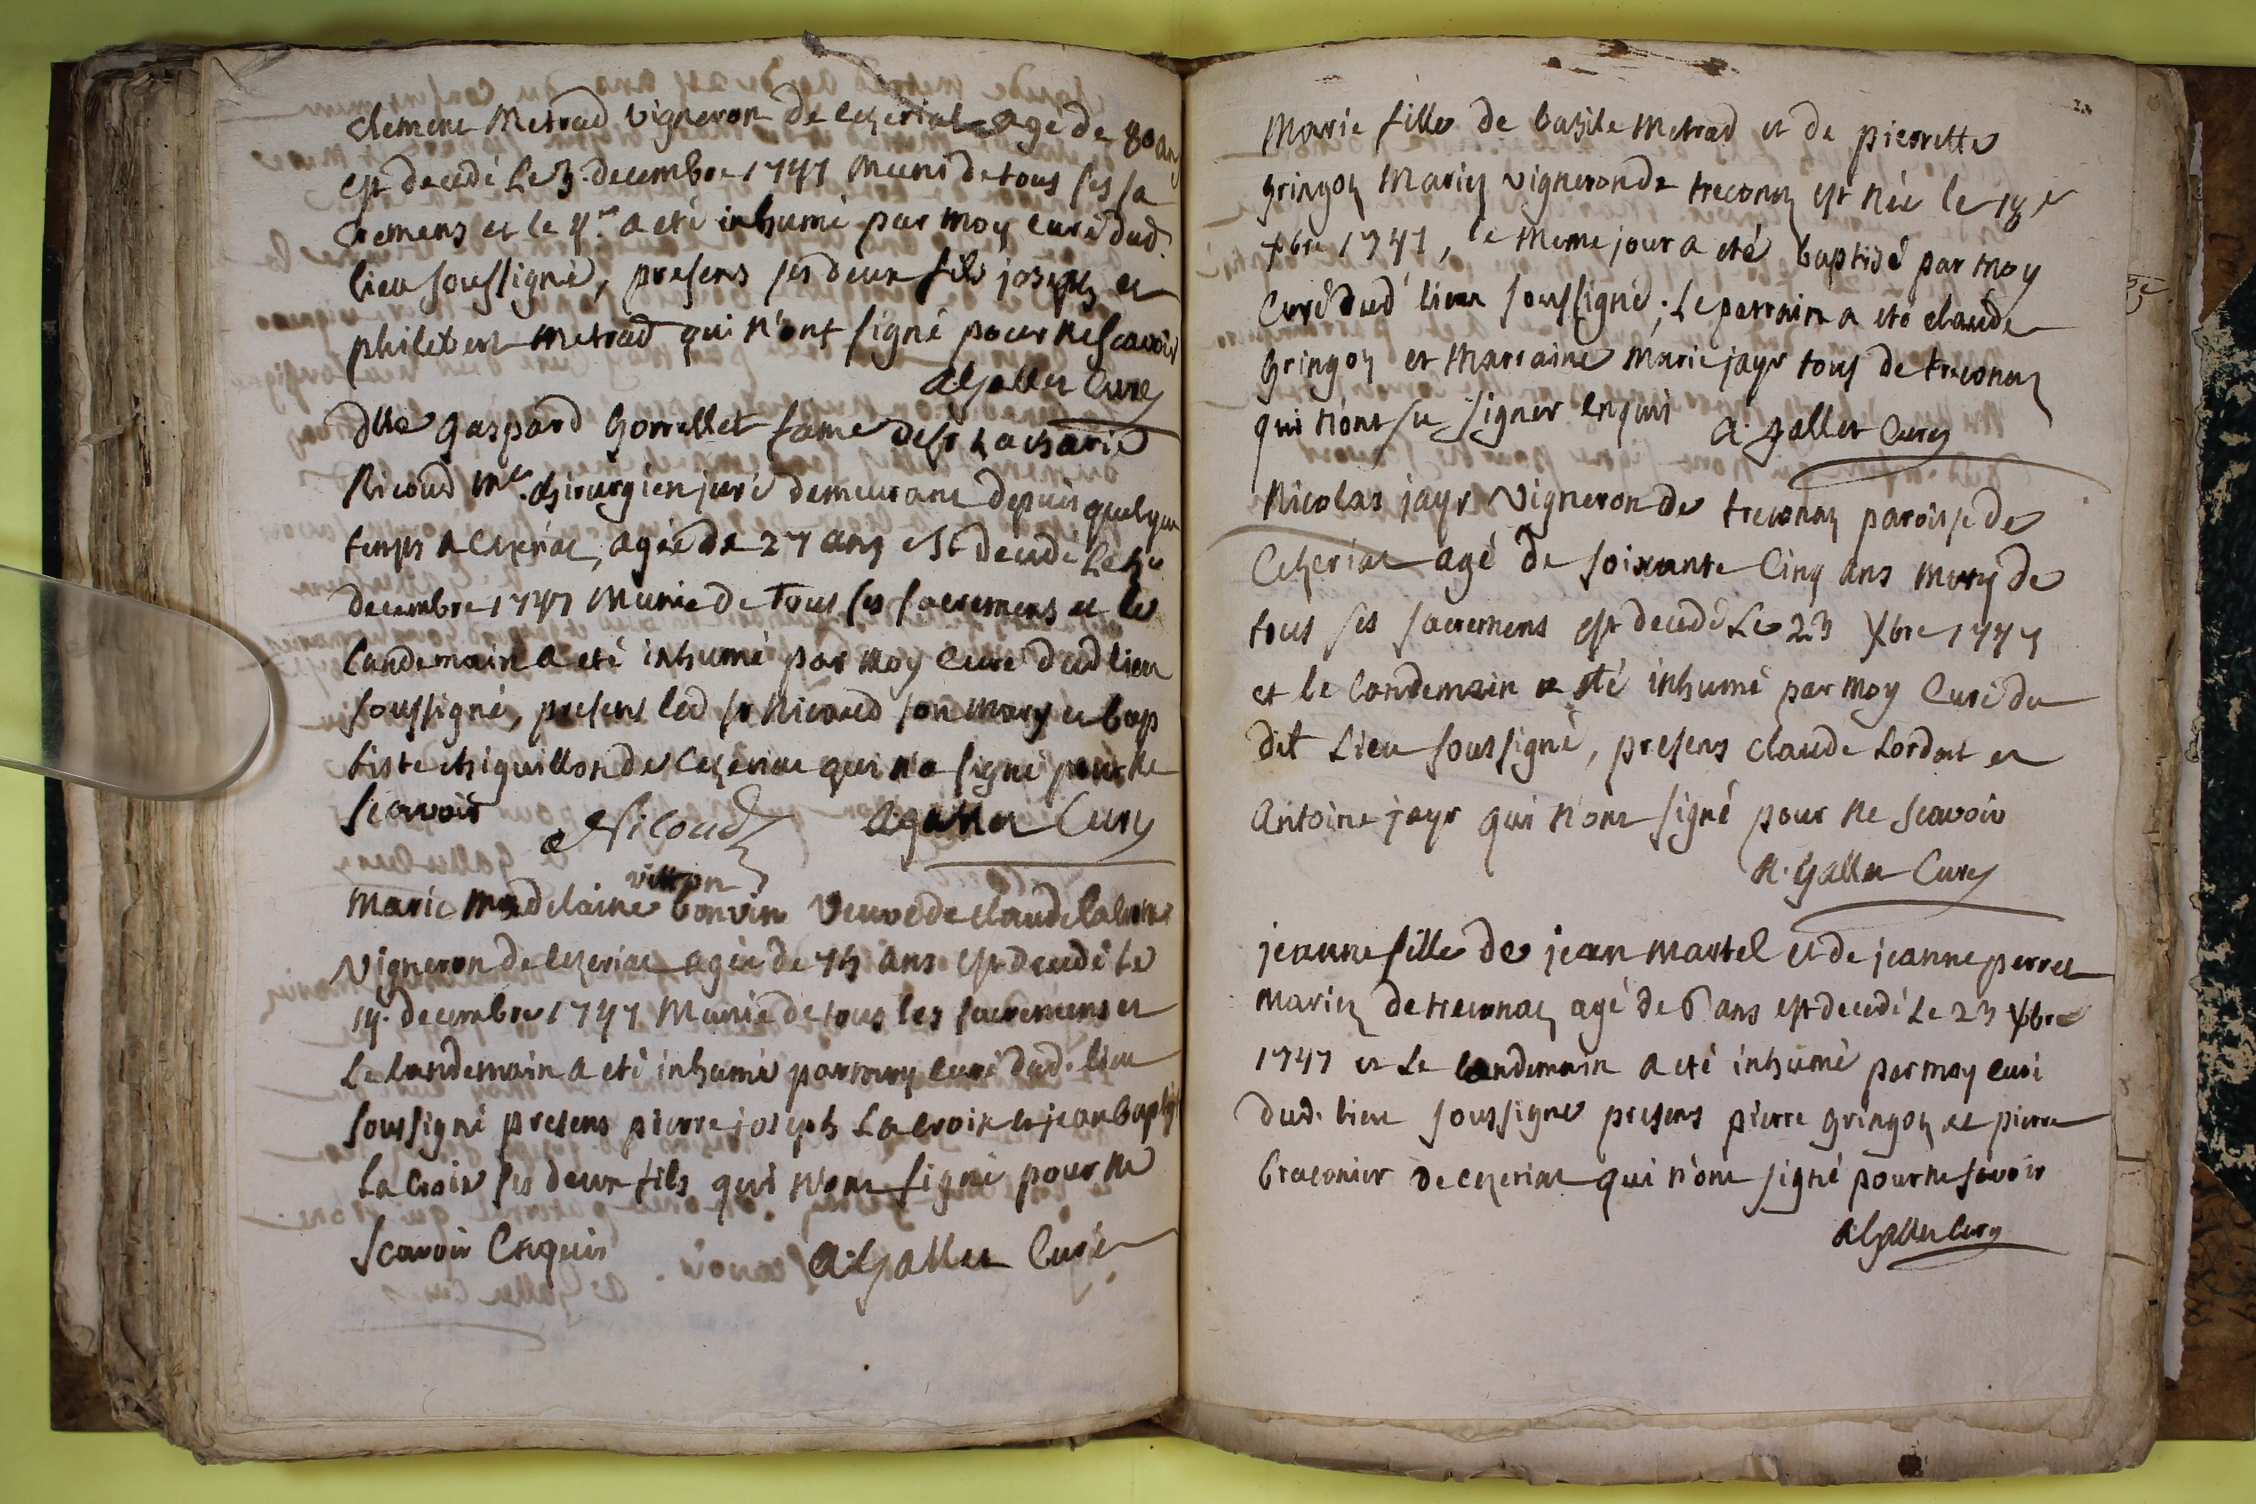 Clement Metrad vigneron de Cezeriat agé de 80 ans
est decedé le 3. decembre 1747 muni de tous ses sa
cremens et le 4.e a eté inhumé par moy curé dud.
lieu soussigné, presens ses deux fils joseph et
philibert Metrad qui n'ont signé pour ne scavoir
A. Gallet Curé
dlle Gaspard Borrellet fame de sr Zacharie
Nicoud me. chirurgien juré demeurant depuis quelque
temps a Cezeriat, agée de 27 ans est decedé le
decembre 1747 munie de tous ses sacremens et le
landemain a eté inhumé par moy curé dud lieu
soussigné, presens led sr Nicoud son mary et bap
tiste chiquillon de Cezeriat qui n'a signé pour ne
scavoir Nicoud A. Gallet Cury
villon
Marie Madelaine bonvin veuve de claude lacroix
vigneron de Cezeriat agée de 75 ans est decedé le
14. decembre 1747 munie de tous les sacremens et
Le landemain a eté inhumé par moy curé dud. lieu
soussigné presens pierre joseph Lacroix et jean baptiste
La Croix ses deux fils qui n'ont signé pour ne
scavoir Enquis A. Gallet Curé
Marie fille de bazile Metrad et de pierrette
Gringoz Mariez vigneron de treconnaz est née le 18e
xbre 1747, le meme jour a eté baptisé par moy
Curé dud lieu soussigné; Le parrain a eté claude
Gringoz et Marraine Marie jayr tous de treconnaz
qui n'ont su signer enquis A. Gallet Cury
Nicolas jayr vigneron de treconnaz paroisse de
Cezeriat agé de soixante cinq ans muny de
tous ses sacremens est decedé Le 23 xbre 1747
et le landemain a eté inhumé par moy Curé du
dit Lieu soussigné, presens claude Lordat et
Antoine jayr qui n'ont signé pour ne scavoir
A. Gallet Cury
jeanne fille de jean martel et de jeanne perret
mariez de treconnaz agé de 6 ans est decedé Le 23 xbre
1747 et Le landemain a eté inhumé par moy curé
dud. lieu soussigné presens pierre gringoz et pierre
braconier de cezeriat qui n'ont signé pour ne savoir
A Gallet Cury